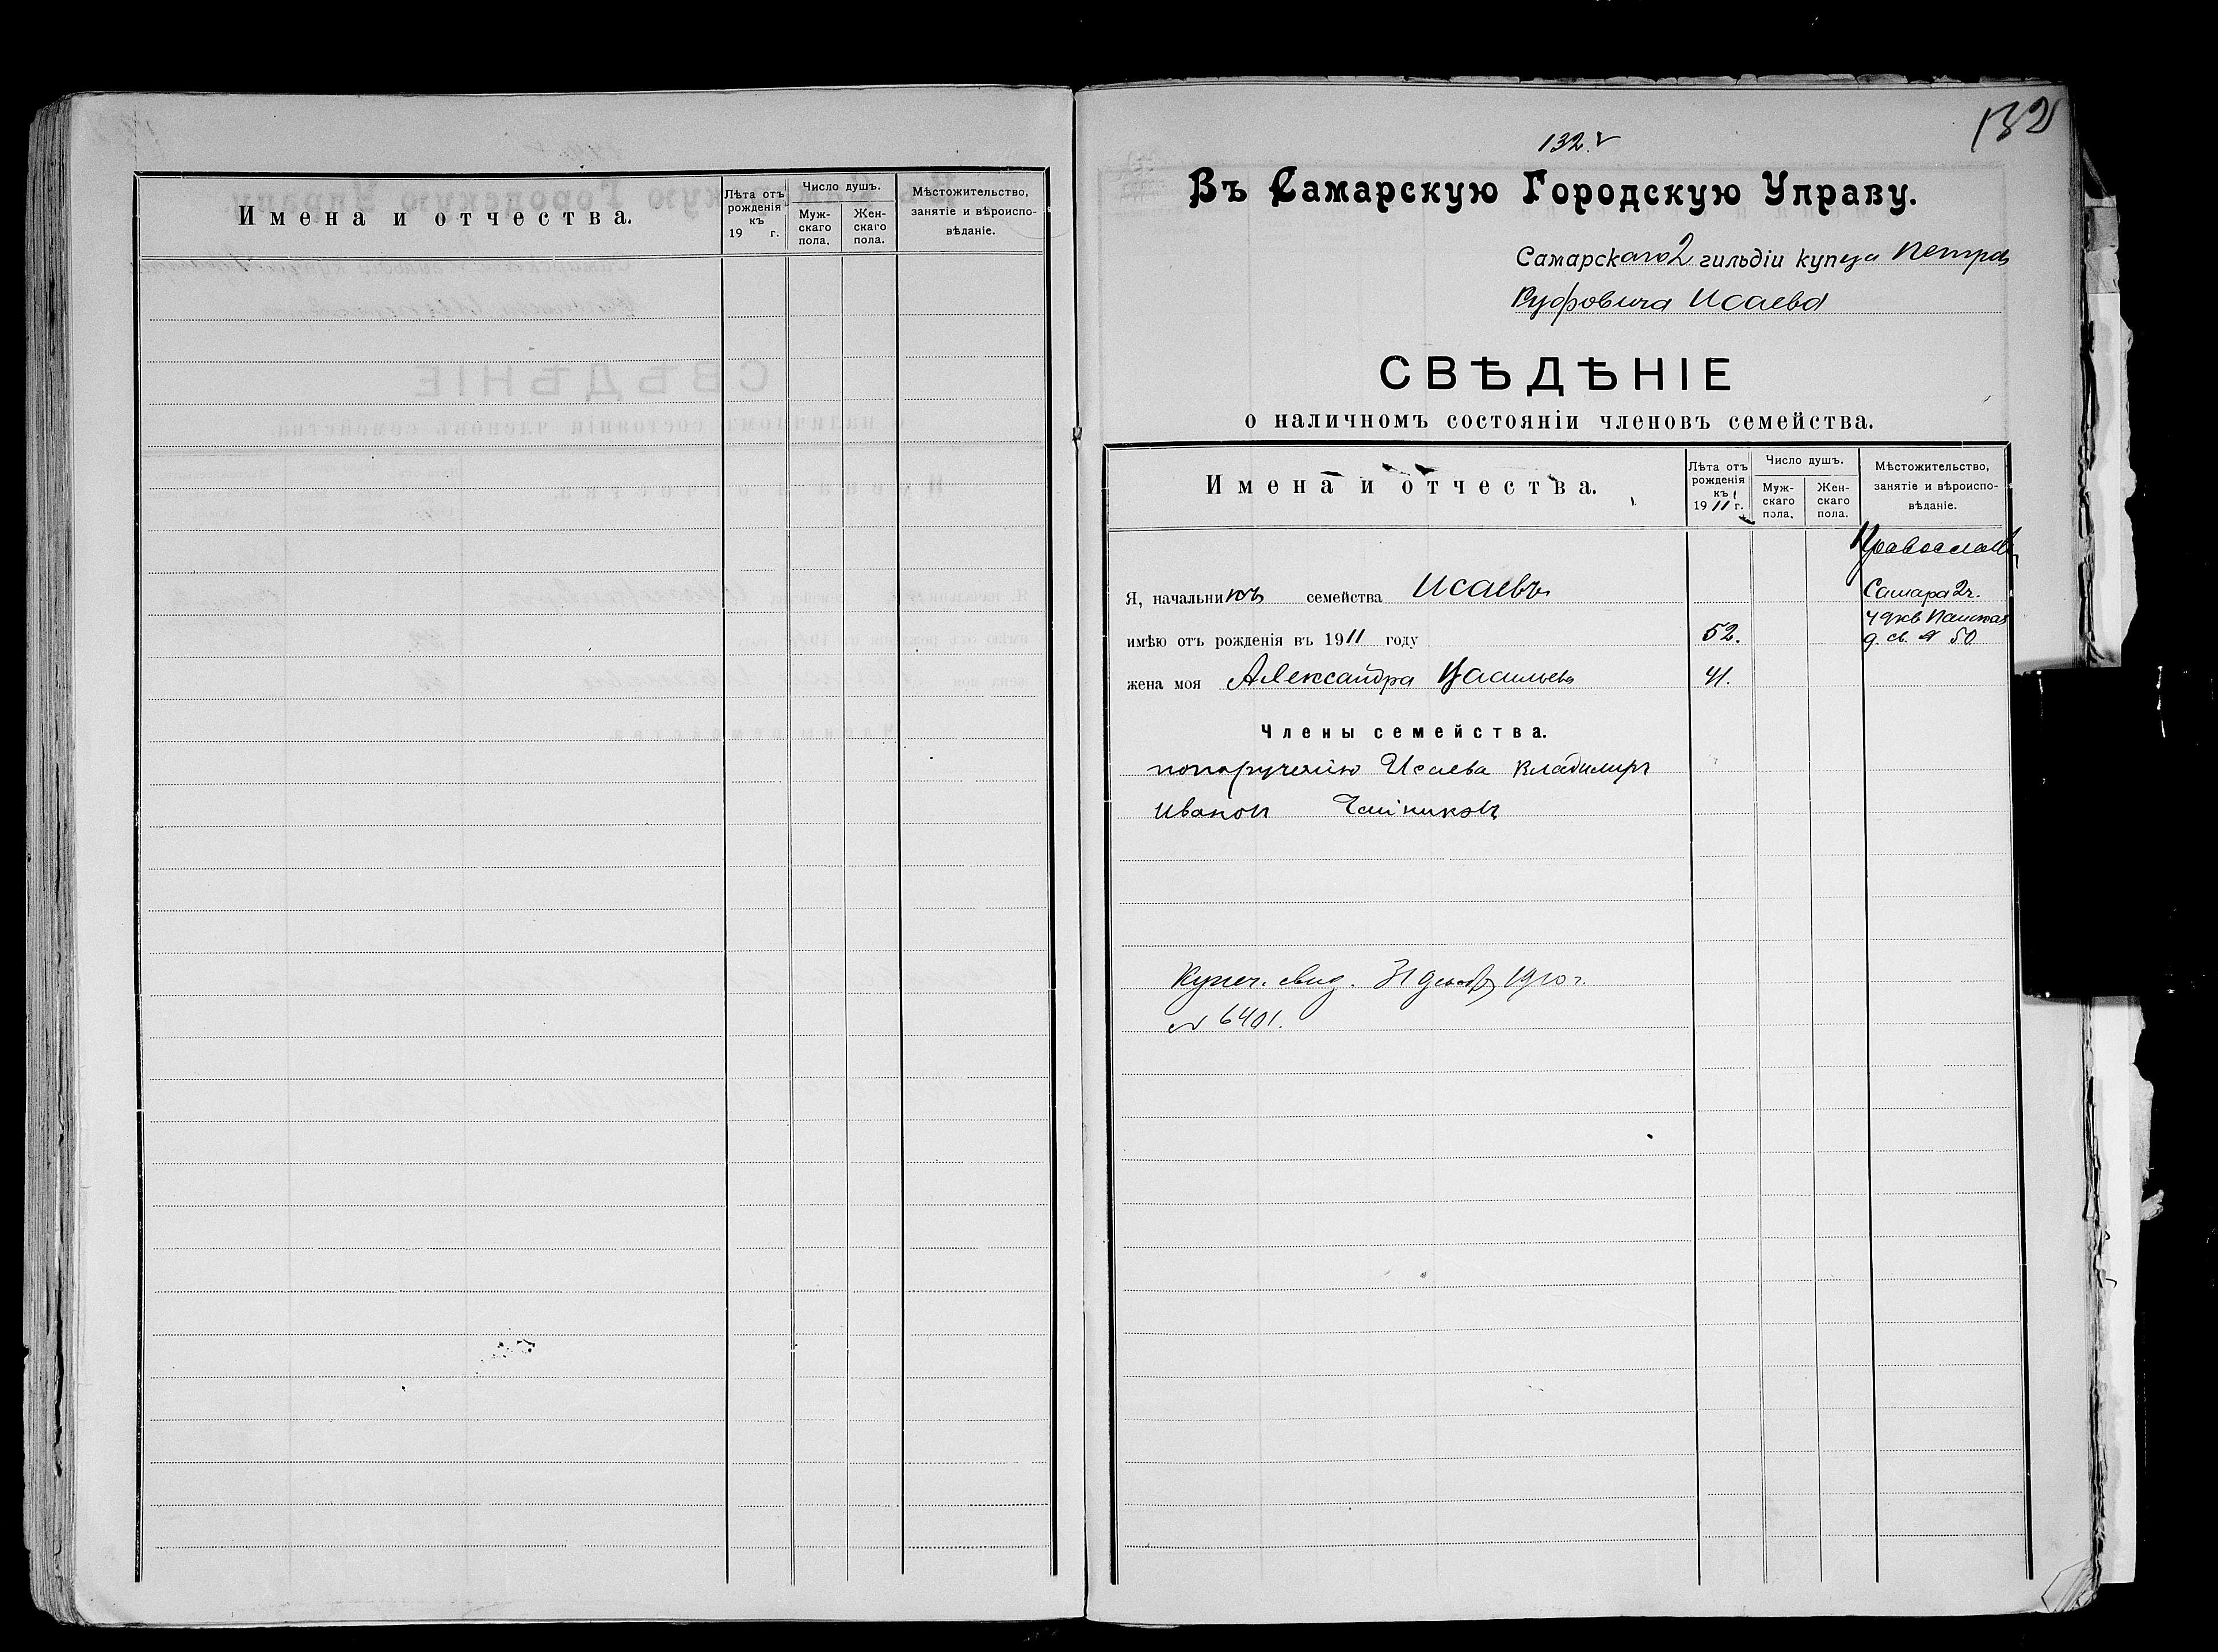 Имена и отчества.
Лѣта отъ рожденія къ 19 г.
Число душъ.
Муж-
скаго
пола.
Жен-
скаго
пола.
Мѣстожительство,
занятіе и вѣроиспо-
вѣданіе.
132
132.
Въ Самарскую Городскую Управу.
Самарскаго 2 гильдіи купца Петра
Руфовича Исаева
СВѢДѢНІЕ
о наличномъ состояніи членовъ семейства.
Имена и отчества.
Лѣта отъ
рожденія
къ 1
1911 г.
Число душъ.
Муж-
скаго
пола.
Жен-
скаго
пола.
Мѣстожительство,
занятіе и вѣроиспо-
вѣданіе.
Православ
Я, начальникъ семейства Исаевъ
Самара 2ч.
имѣю отъ рожденія въ 1911 году 52.
д. св. № 50
жена моя Александра Васильевн 41.
Члены семейства.
попорученію Исаева Владимиръ
Иванов Чайниковъ
Купеч. свид. 31 декабр 1910 г.
№ 6401.